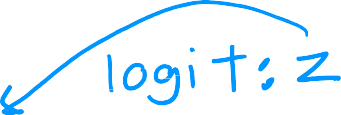 logit: z